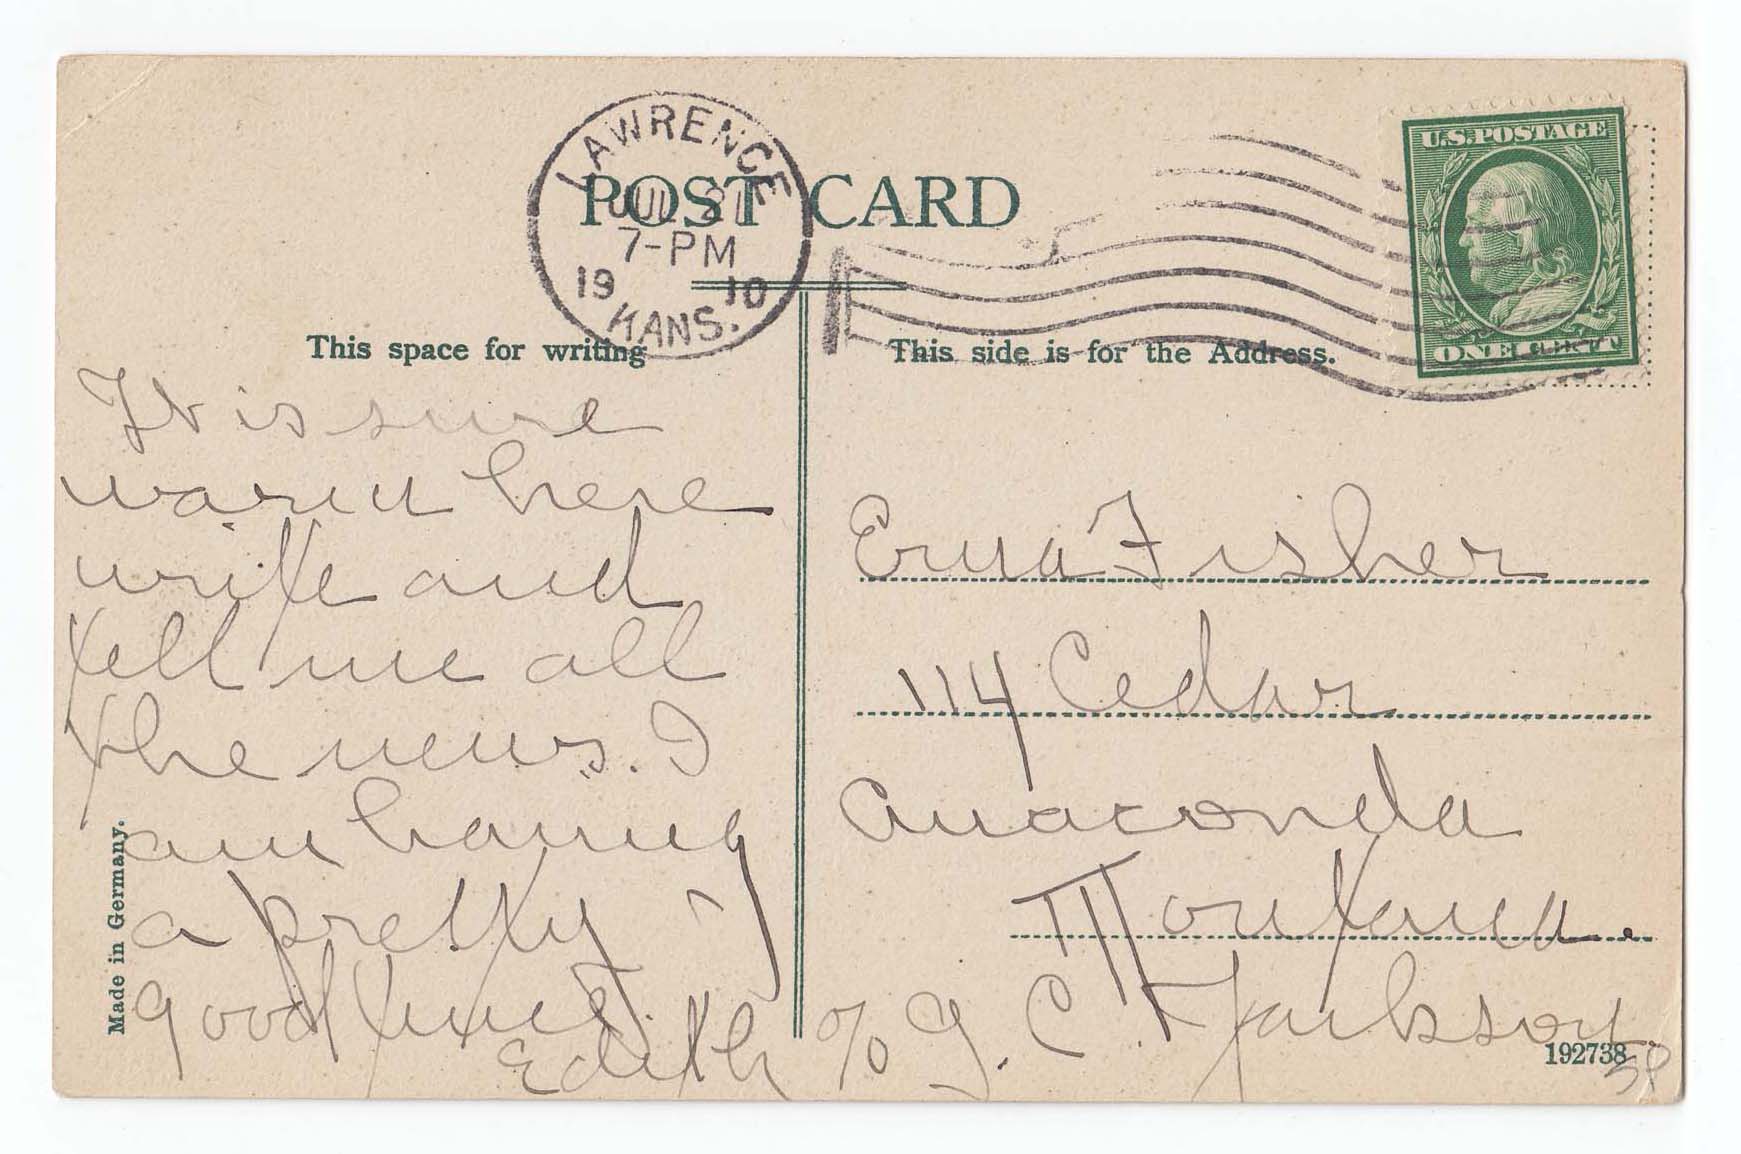 LAWRENCE
JUL 21
7-PM
19 10
KANS.
POST CARD
U.S. POSTAGE
ONE CENT
This space for writing
This side is for the Address.
It is sure
warm here
write and
tell me all
the news. I
am having
a pretty
good time.
Edith
Made in Germany.
Erma Fisher
114 Cedar
Anaconda
Montana.
% G. C. Jackson
192738